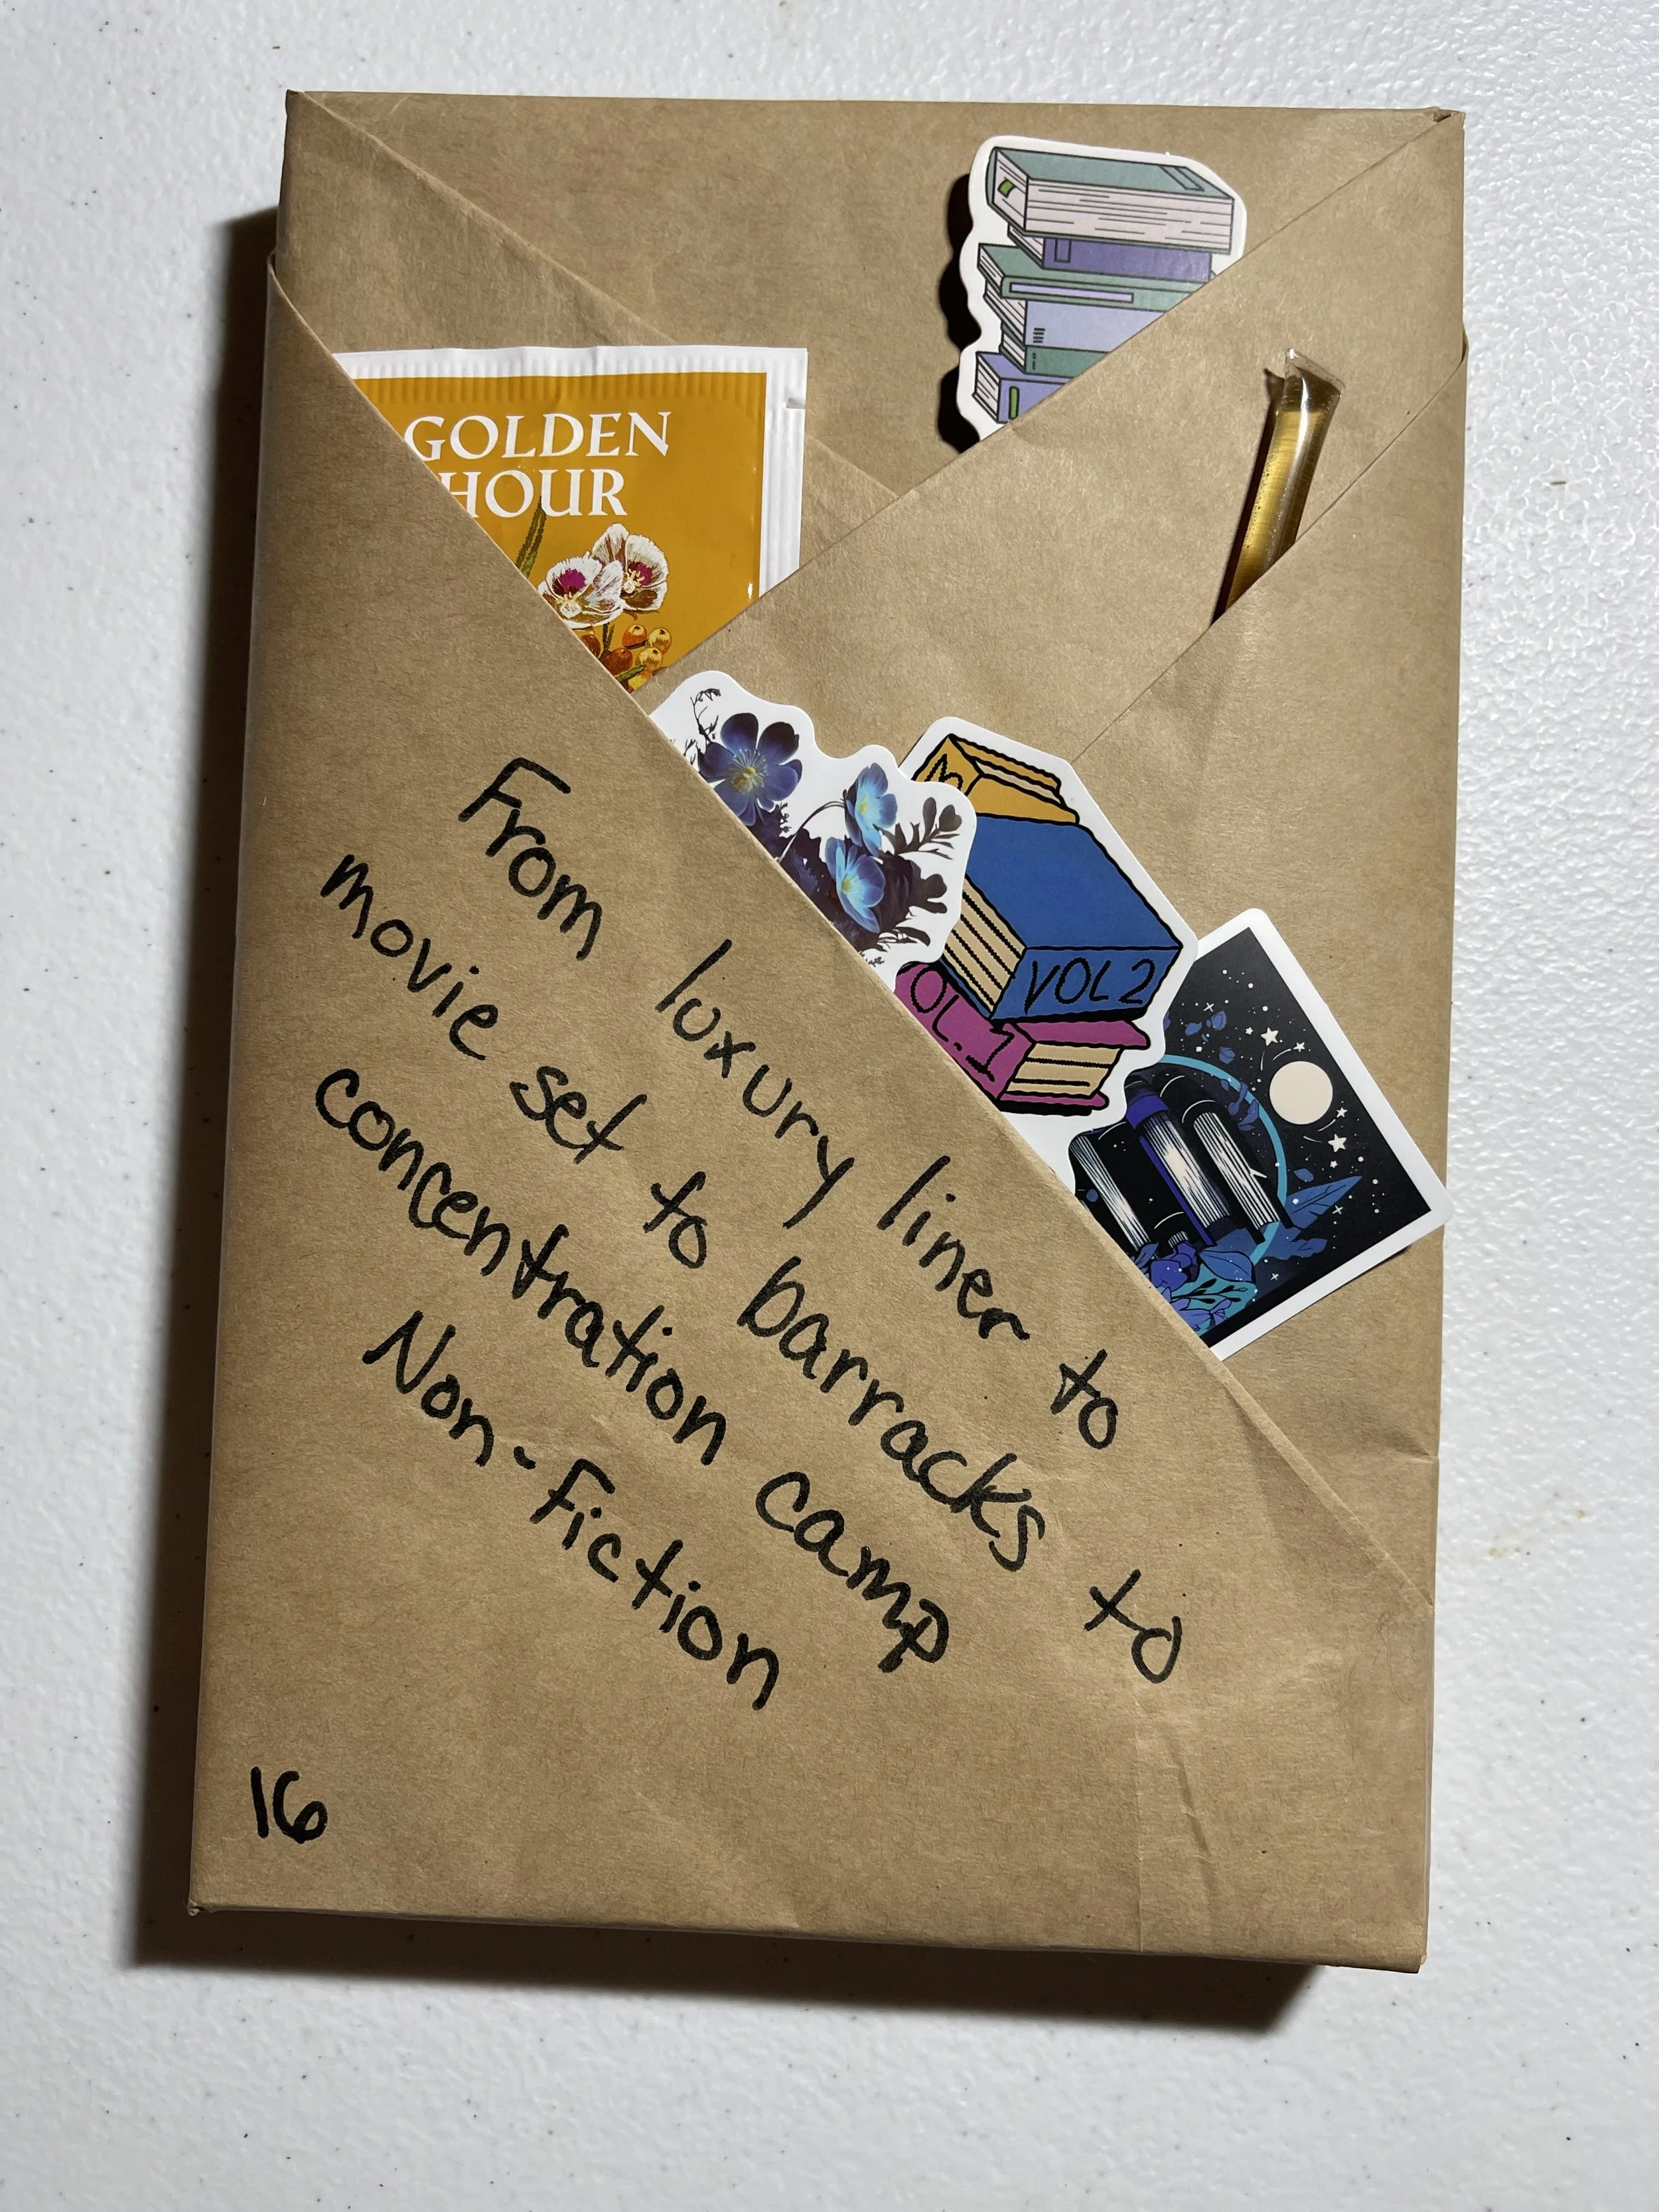 GOLDEN
HOUR
VOL 2
OL.1
From luxury liner to
movie set to barracks to
concentration camp
Non-Fiction
16